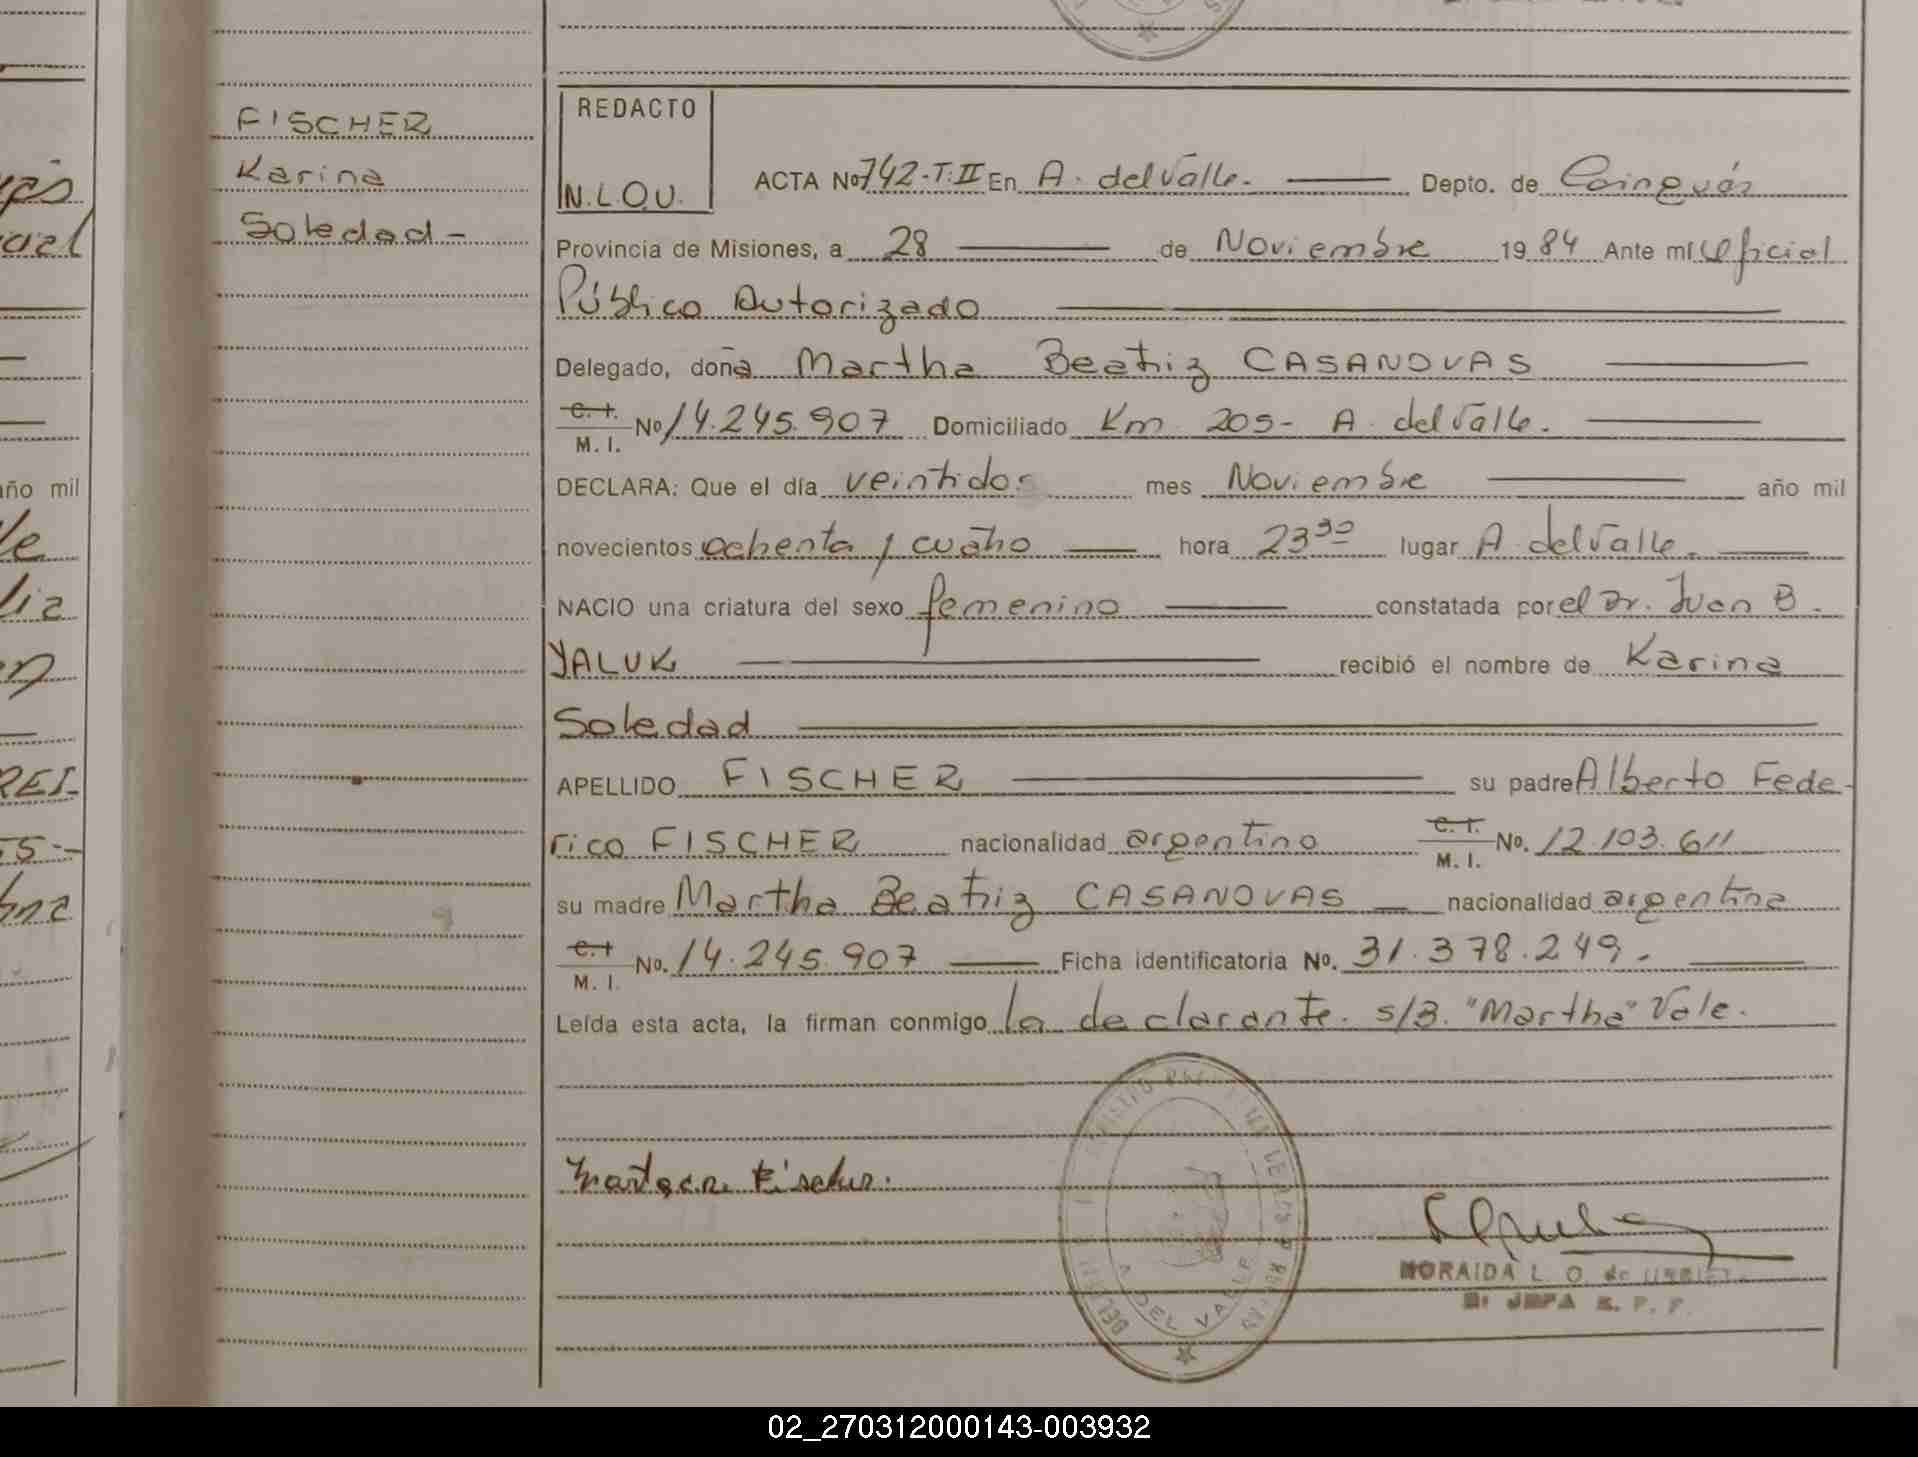 FISCHER
Karina
Soledad -
REDACTO
N.L.O.U.
ACTA Nº 742-T.II En A. del Valle. Depto. de Cainguás
Provincia de Misiones, a 28 de Noviembre 1984 Ante mí Oficial
Público Autorizado
Delegado, doña Martha Beatriz CASANOVAS
C.I. M.I. Nº 14.245.907 Domiciliado Km 205 - A. del Valle.
DECLARA: Que el día veintidos mes Noviembre año mil
novecientos ochenta y cuatro hora 23 30 lugar A. del Valle.
NACIO una criatura del sexo femenino constatada por el Dr. Juan B.
YALUK recibió el nombre de Karina
Soledad
APELLIDO FISCHER su padre Alberto Fede-
rico FISCHER nacionalidad argentino C.I. M.I. Nº. 12.103.611
su madre Martha Beatriz CASANOVAS nacionalidad argentina
C.I M.I. Nº. 14.245.907 Ficha identificatoria Nº. 31.378.249.
Leída esta acta, la firman conmigo la declarante. s/B. "Martha" Vale.
A. DEL VALLE
NORAIDA L. O. de
JEFA
año mil
02_270312000143-003932